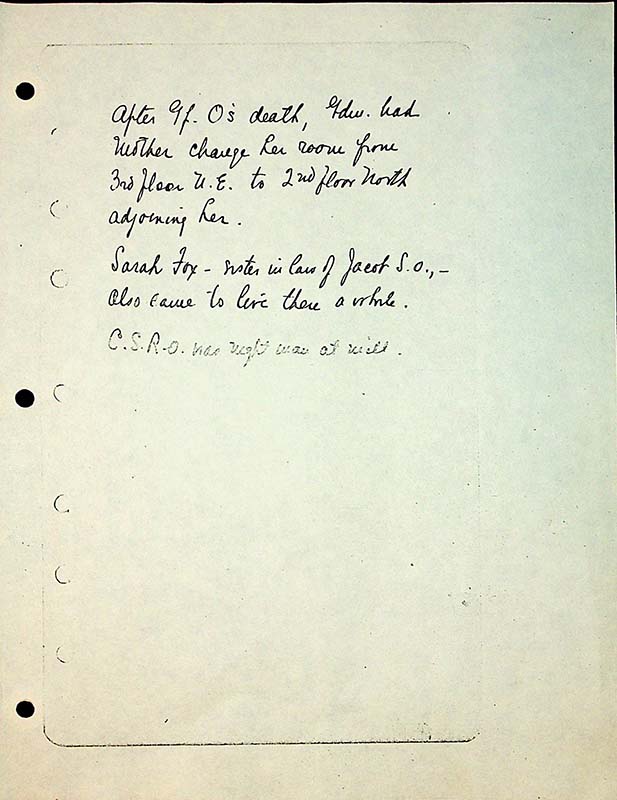 After Gf. O's death, Gdm. had
Mother change her room from
3rd floor N.E. to 2nd floor North
adjoining her.
Sarah Fox - sister in law of Jacob S.O., -
also came to live there a while.
C.S.R.O. was night man at mill.